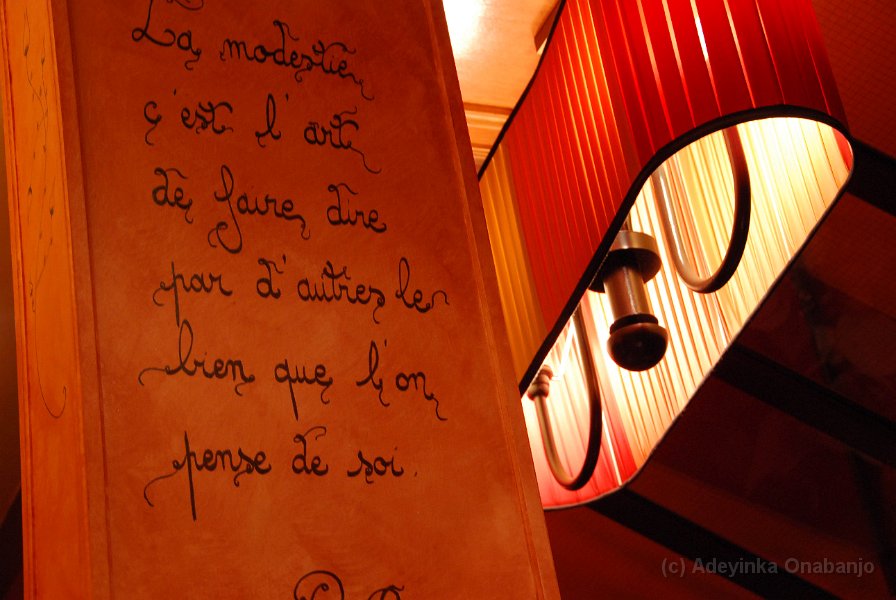 La modestie,
c'est l'art
de faire dire
par d'autres le
bien que l'on
pense de soi.
(c) Adeyinka Onabanjo